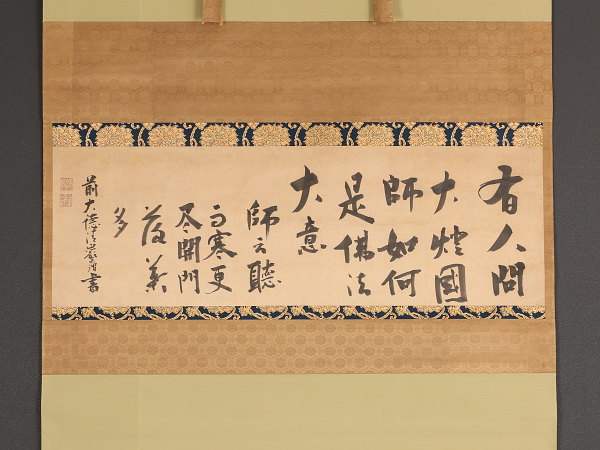 有人問
大燈國
師如何
是佛法
大意
師云聽
雨寒更
尽開門
落葉
多
前大德 書